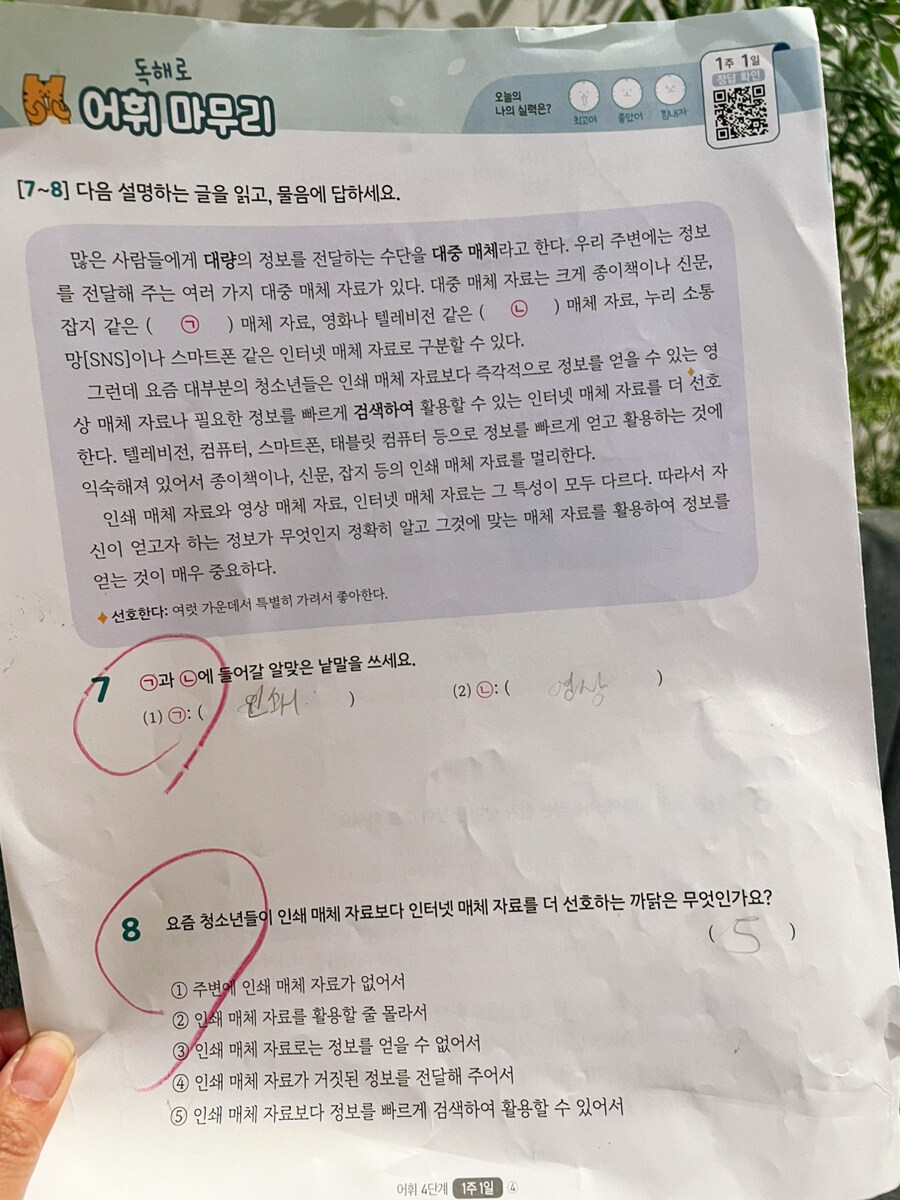 독해로
어휘 마무리
오늘의
나의 실력은?
최고야
좋았어
힘내자
1주 1일
정답 확인
[7~8] 다음 설명하는 글을 읽고, 물음에 답하세요.
많은 사람들에게 대량의 정보를 전달하는 수단을 대중 매체라고 한다. 우리 주변에는 정보
를 전달해 주는 여러 가지 대중 매체 자료가 있다. 대중 매체 자료는 크게 종이책이나 신문,
잡지 같은 ( ㉠ ) 매체 자료, 영화나 텔레비전 같은 ( ㉡ ) 매체 자료, 누리 소통
망[SNS]이나 스마트폰 같은 인터넷 매체 자료로 구분할 수 있다.
그런데 요즘 대부분의 청소년들은 인쇄 매체 자료보다 즉각적으로 정보를 얻을 수 있는 영
상 매체 자료나 필요한 정보를 빠르게 검색하여 활용할 수 있는 인터넷 매체 자료를 더 선호
한다. 텔레비전, 컴퓨터, 스마트폰, 태블릿 컴퓨터 등으로 정보를 빠르게 얻고 활용하는 것에
익숙해져 있어서 종이책이나, 신문, 잡지 등의 인쇄 매체 자료를 멀리한다.
인쇄 매체 자료와 영상 매체 자료, 인터넷 매체 자료는 그 특성이 모두 다르다. 따라서 자
신이 얻고자 하는 정보가 무엇인지 정확히 알고 그것에 맞는 매체 자료를 활용하여 정보를
얻는 것이 매우 중요하다.
선호한다: 여럿 가운데서 특별히 가려서 좋아한다.
7 ㉠과 ㉡에 들어갈 알맞은 낱말을 쓰세요.
(1) ㉠: ( 인쇄 ) (2) ㉡: ( 영상 )
8 요즘 청소년들이 인쇄 매체 자료보다 인터넷 매체 자료를 더 선호하는 까닭은 무엇인가요?
( 5 )
① 주변에 인쇄 매체 자료가 없어서
② 인쇄 매체 자료를 활용할 줄 몰라서
③ 인쇄 매체 자료로는 정보를 얻을 수 없어서
④ 인쇄 매체 자료가 거짓된 정보를 전달해 주어서
⑤ 인쇄 매체 자료보다 정보를 빠르게 검색하여 활용할 수 있어서
어휘 4단계 1주 1일 ④